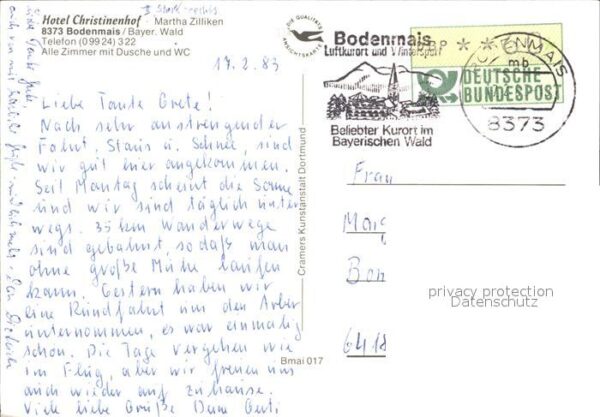 Hotel Christinenhof - Martha Zilliken
8373 Bodenmais / Bayer. Wald
Telefon (0 99 24) 322
Alle Zimmer mit Dusche und WC
17.2.83
Liebe Tante Grete!
Nach sehr anstrengender
Fahrt, Staus u. Schnee, sind
wir gut hier angekommen.
Seit Montag scheint die Sonne
und wir sind täglich unter
wegs. 35 km Wanderwege
sind gebahnt, so daß man
ohne große Mühe laufen
kann. Gestern haben wir
eine Rundfahrt um den Arber
unternommen, es war einmalig
schön. Die Tage vergehen wie
im Flug, aber wir freuen uns
auch wieder auf zuhause.
Viele liebe Grüße Deine Gerti
DIE QUALITÄTS
ANSICHTSKARTE
Cramers Kunstanstalt Dortmund
Bmai 017
Bodenmais
Luftkurort und Wintersport
Beliebter Kurort im
Bayerischen Wald
DBP
DEUTSCHE
BUNDESPOST
BODENMAIS
mb
8373
Frau
6418
privacy protection
Datenschutz